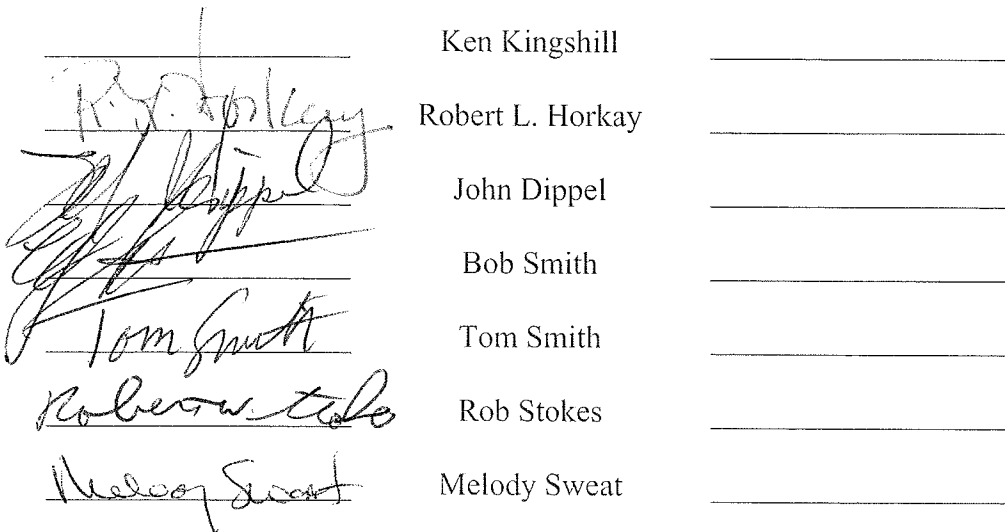 Ken Kingshill
R. L. Horkay Robert L. Horkay
Dippel John Dippel
Bob Smith
Tom Smith Tom Smith
Robert W. Stokes Rob Stokes
Melody Sweat Melody Sweat